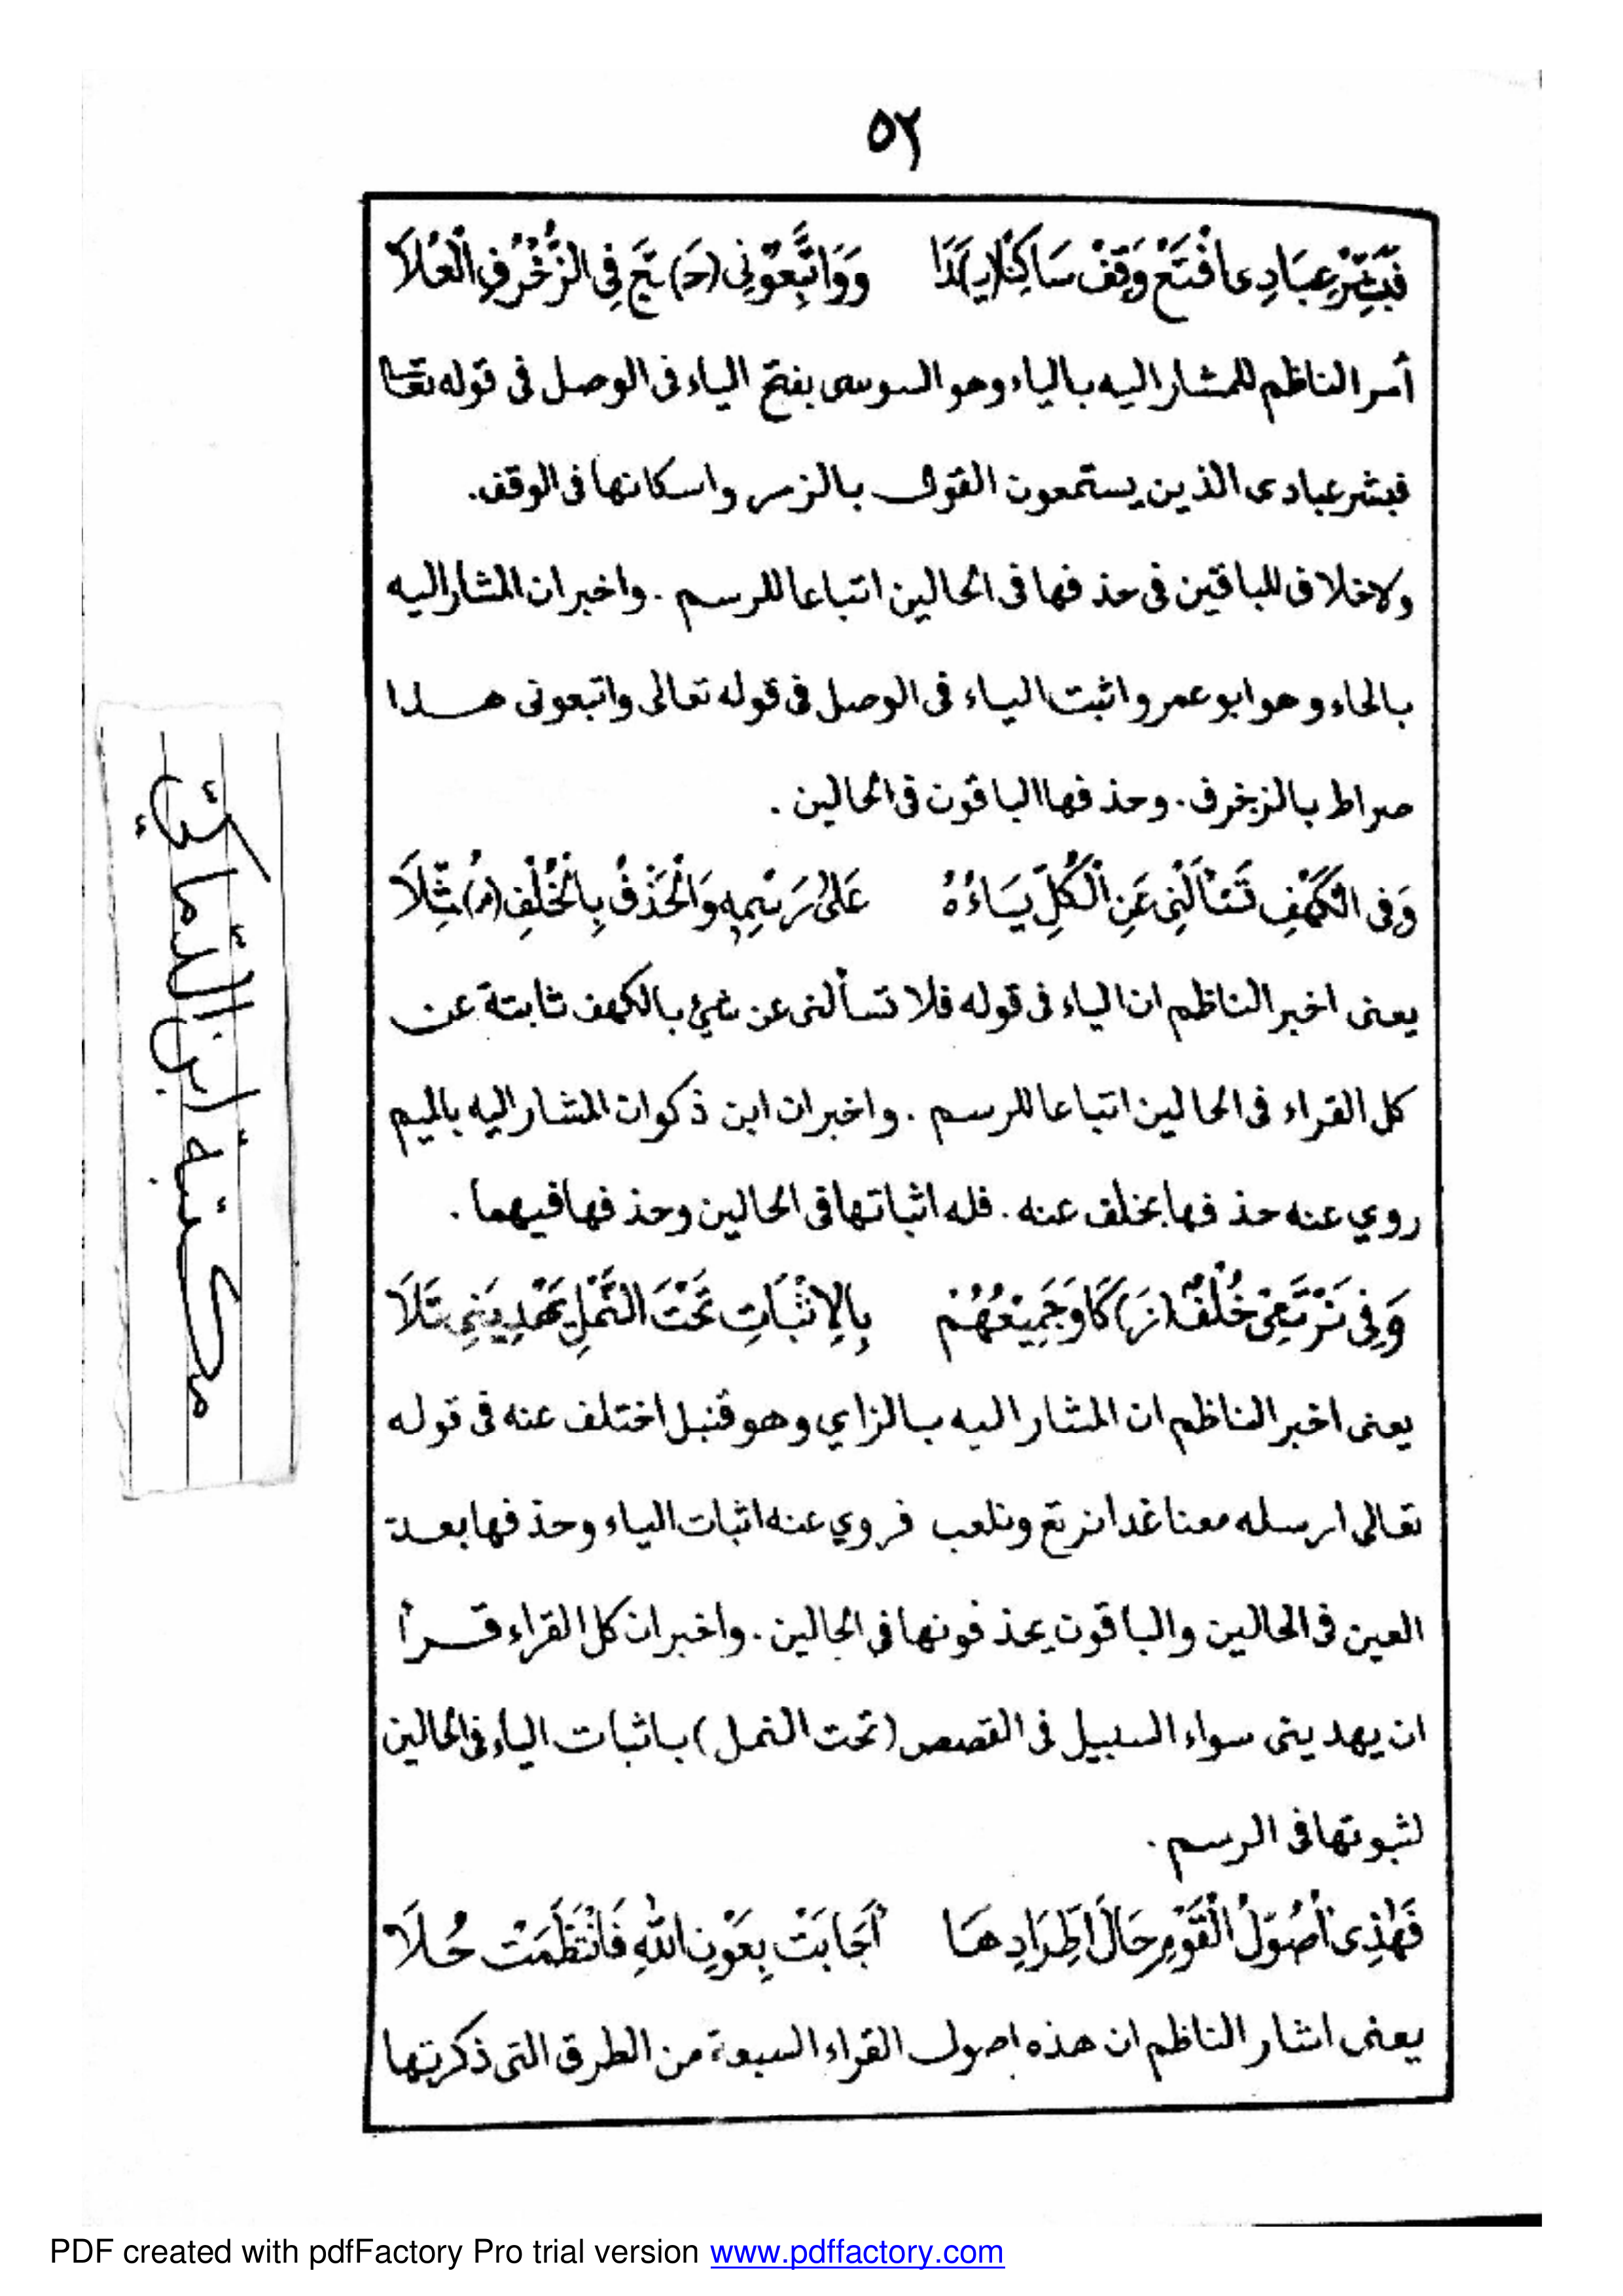 ٥٢
فَبَشِّرْ عِبَادِى افْتَحْ وَقِفْ سَاكِنًا (يَـ)ـدًا وَوَاتَّبِعُوْنِى (حَـ)ـجَّ فِى الزُّخْرُفِ الْعُلَا
أمر الناظم للمشار اليه بالياء وهو السوسى بفتح الياء فى الوصل فى قوله تعالى
فبشر عبادى الذين يستمعون القول بالزمر واسكانها فى الوقف.
ولاخلاف للباقين فى حذفها فى الحالين اتباعا للرسم . واخبر ان المشار اليه
بالحاء وهو ابو عمرو اثبت الياء فى الوصل فى قوله تعالى واتبعونى هذا
صراط بالزخرف . وحذفها الباقون فى الحالين .
وَفِى الْكَهْفِ تَسْأَلْنِى عَنِ الْكُلِّ يَاءُهُ عَلَى رَسْمِهِ وَالْحَذْفُ بِالْخُلْفِ (مُـ)ـثِّلَا
يعنى اخبر الناظم ان الياء فى قوله فلا تسألنى عن شئ بالكهف ثابتة عن
كل القراء فى الحالين اتباعا للرسم . واخبر ان ابن ذكوان المشار اليه بالميم
روي عنه حذفها بخلف عنه . فله اثباتها فى الحالين وحذفها فيهما .
وَفِى نَرْتَعِى خُلْفٌ (زَ)كَا وَجَمِيْعُهُمْ بِالِاثْبَاتِ تَحْتَ النَّمْلِ يَهْدِيَنِى تَلَا
يعنى اخبر الناظم ان المشار اليه بالزاي وهو قنبل اختلف عنه فى قوله
تعالى ارسله معنا غدا نرتع ونلعب فروي عنه اثبات الياء وحذفها بعد
العين فى الحالين والباقون يحذفونها فى الحالين . واخبر ان كل القراء قرأ
ان يهدينى سواء السبيل فى القصص (تحت النمل) باثبات الياء فى الحالين
لثبوتها فى الرسم .
فَهٰذِى أُصُوْلُ الْقَوْمِ حَالَ اطِّرَادِهَا أَجَابَتْ بِعَوْنِ اللهِ فَانْتَظَمَتْ حُلَا
يعنى اشار الناظم ان هذه اصول القراء السبعة من الطرق التى ذكرتها
مكتبة ابن الدماكي
PDF created with pdfFactory Pro trial version www.pdffactory.com